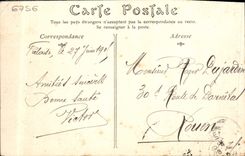 6756
Carte Postale
Tous les pays étrangers n'acceptent pas la correspondance au recto.
Se renseigner à la poste.
Correspondance
Adresse
le 27 Juin 190
Amitiés sincères
Bonne Santé
Victor
Monsieur Roger Dujardin
30 Route de Darnétal
Rouen